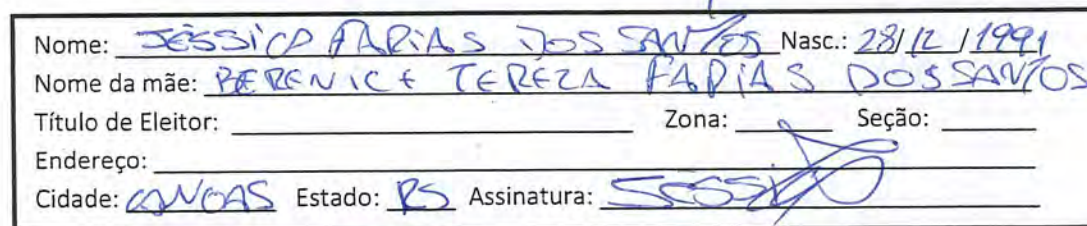 Nome: JÉSSICA FARIAS DOS SANTOS Nasc.: 28/12/1991
Nome da mãe: BERENICE TEREZA FARIAS DOS SANTOS
Título de Eleitor: Zona: Seção:
Endereço:
Cidade: CANOAS Estado: RS Assinatura: